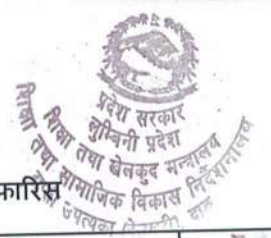 प्रदेश सरकार
लुम्बिनी प्रदेश
शिक्षा तथा खेलकुद मन्त्रालय
शिक्षा तथा सामाजिक विकास निर्देशनालय
उपत्यका
दाङ
फारिस